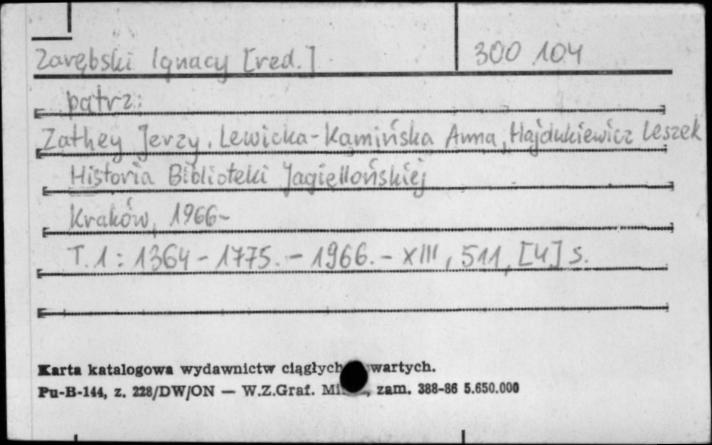 Zarębski Ignacy [red.] 300 104
patrz:
Zathey Jerzy, Lewicka-Kamińska Anna, Hajdukiewicz Leszek
Historia Biblioteki Jagiellońskiej
Kraków, 1966-
T. 1 : 1364 - 1775. - 1966. - XIII, 511, [4] s.
Karta katalogowa wydawnictw ciągłych wartych.
Pu-B-144, z. 228/DW/ON — W.Z.Graf. zam. 388-86 5.650.000